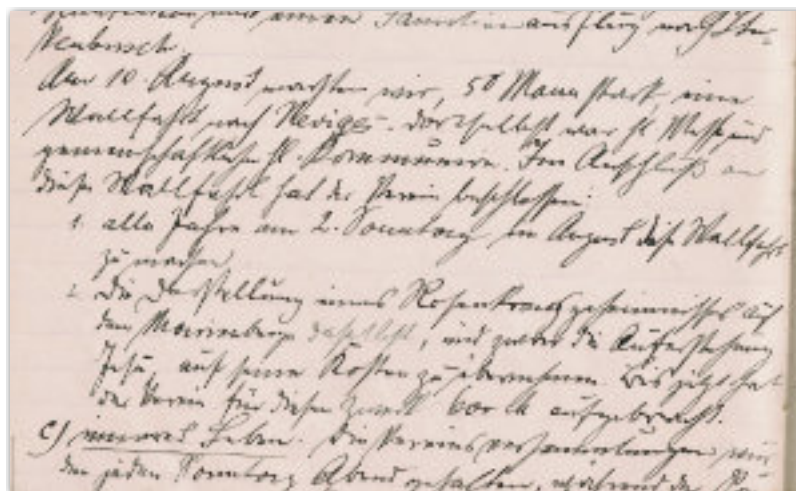 einen Familienausflug nach
Neubusch.
Am 10. August machten wir, 50 Mann stark, eine
Wallfahrt nach Neviges. Dortselbst war hl. Messe und
gemeinschaftliche hl. Kommunion. Im Anschluß an
diese Wallfahrt hat der Verein beschlossen:
1. alle Jahre am 2. Sonntag im August diese Wallfahrt
zu machen
2. die Darstellung eines Rosenkranzgeheimnisses auf
dem Marienberge daselbst, und zwar die Auferstehung
Jesu, auf seine Kosten zu übernehmen. Bis jetzt hat
der Verein für diesen Zweck 600 M aufgebracht.
C) inneres Leben. Die Vereinsversammlungen wur
den jeden Sonntag Abend gehalten, während der